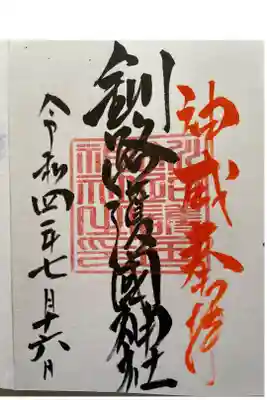 神威奉拝
釧路護國神社
令和四年七月十六日